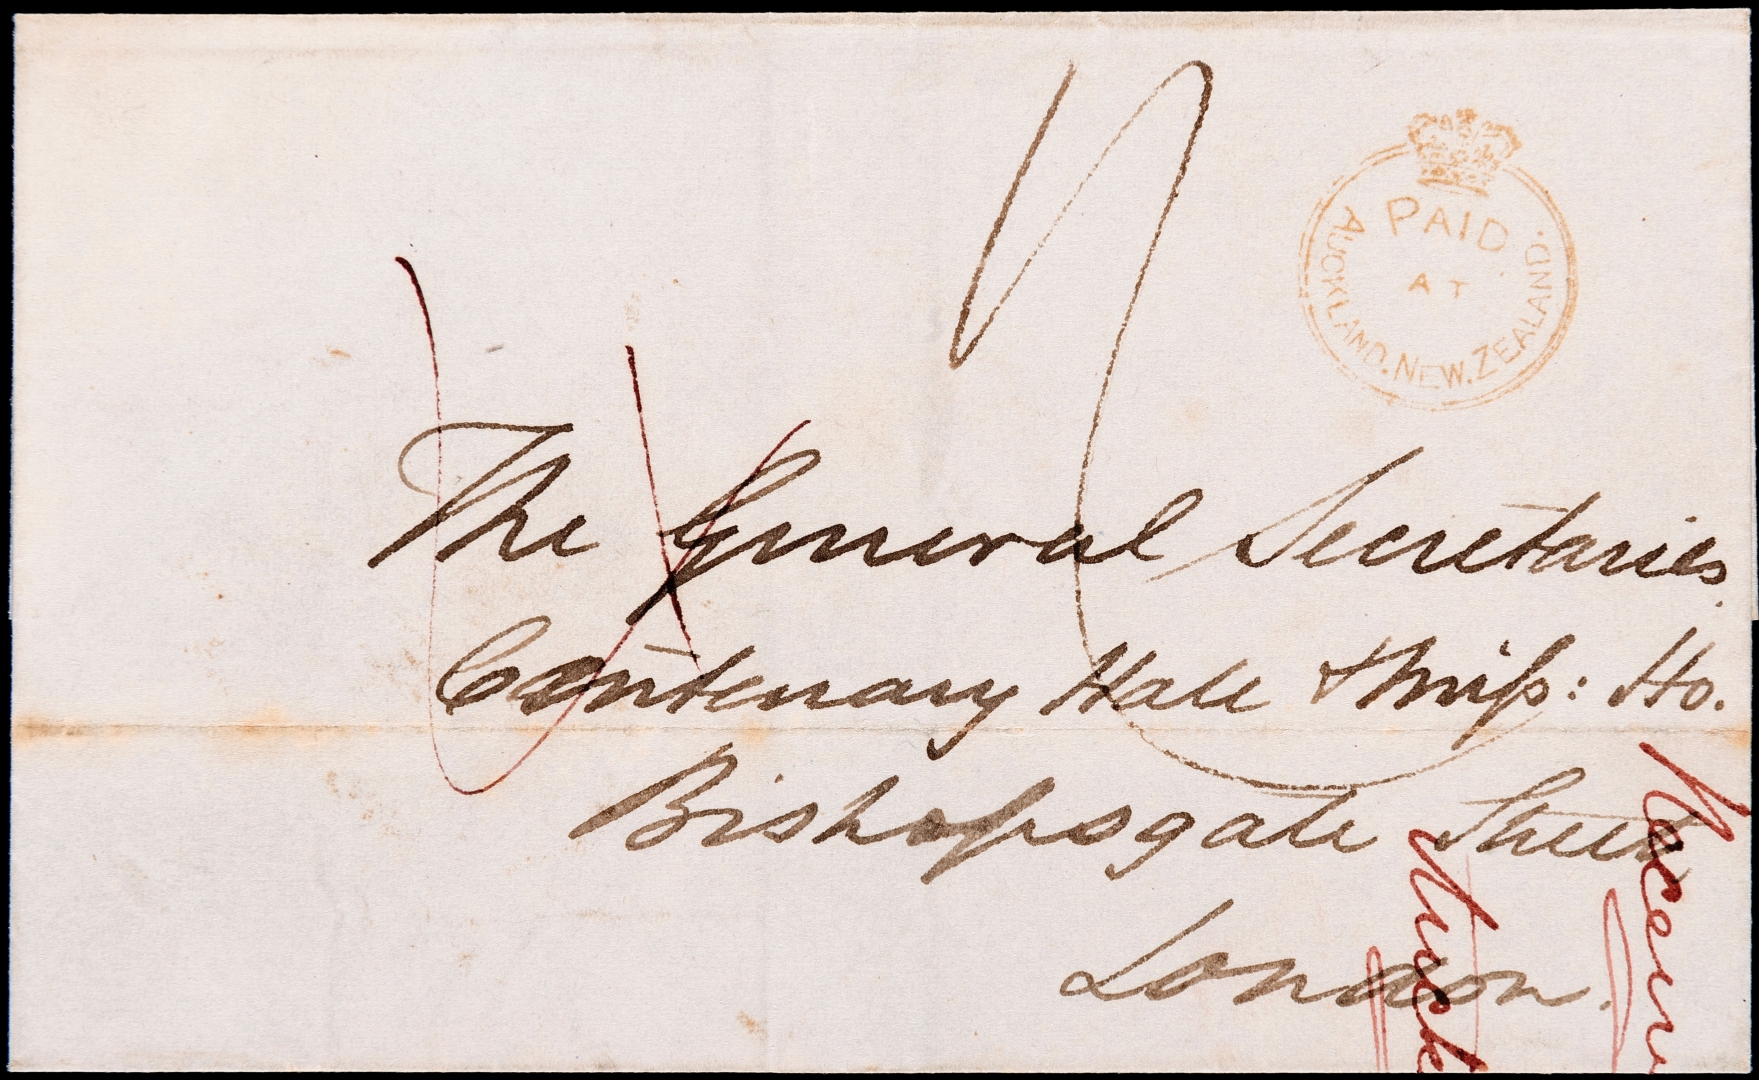 PAID
AT
AUCKLAND. NEW. ZEALAND.
The General Secretaries.
Centenary Hall & Miss: Ho.
Bishopsgate Street
London.